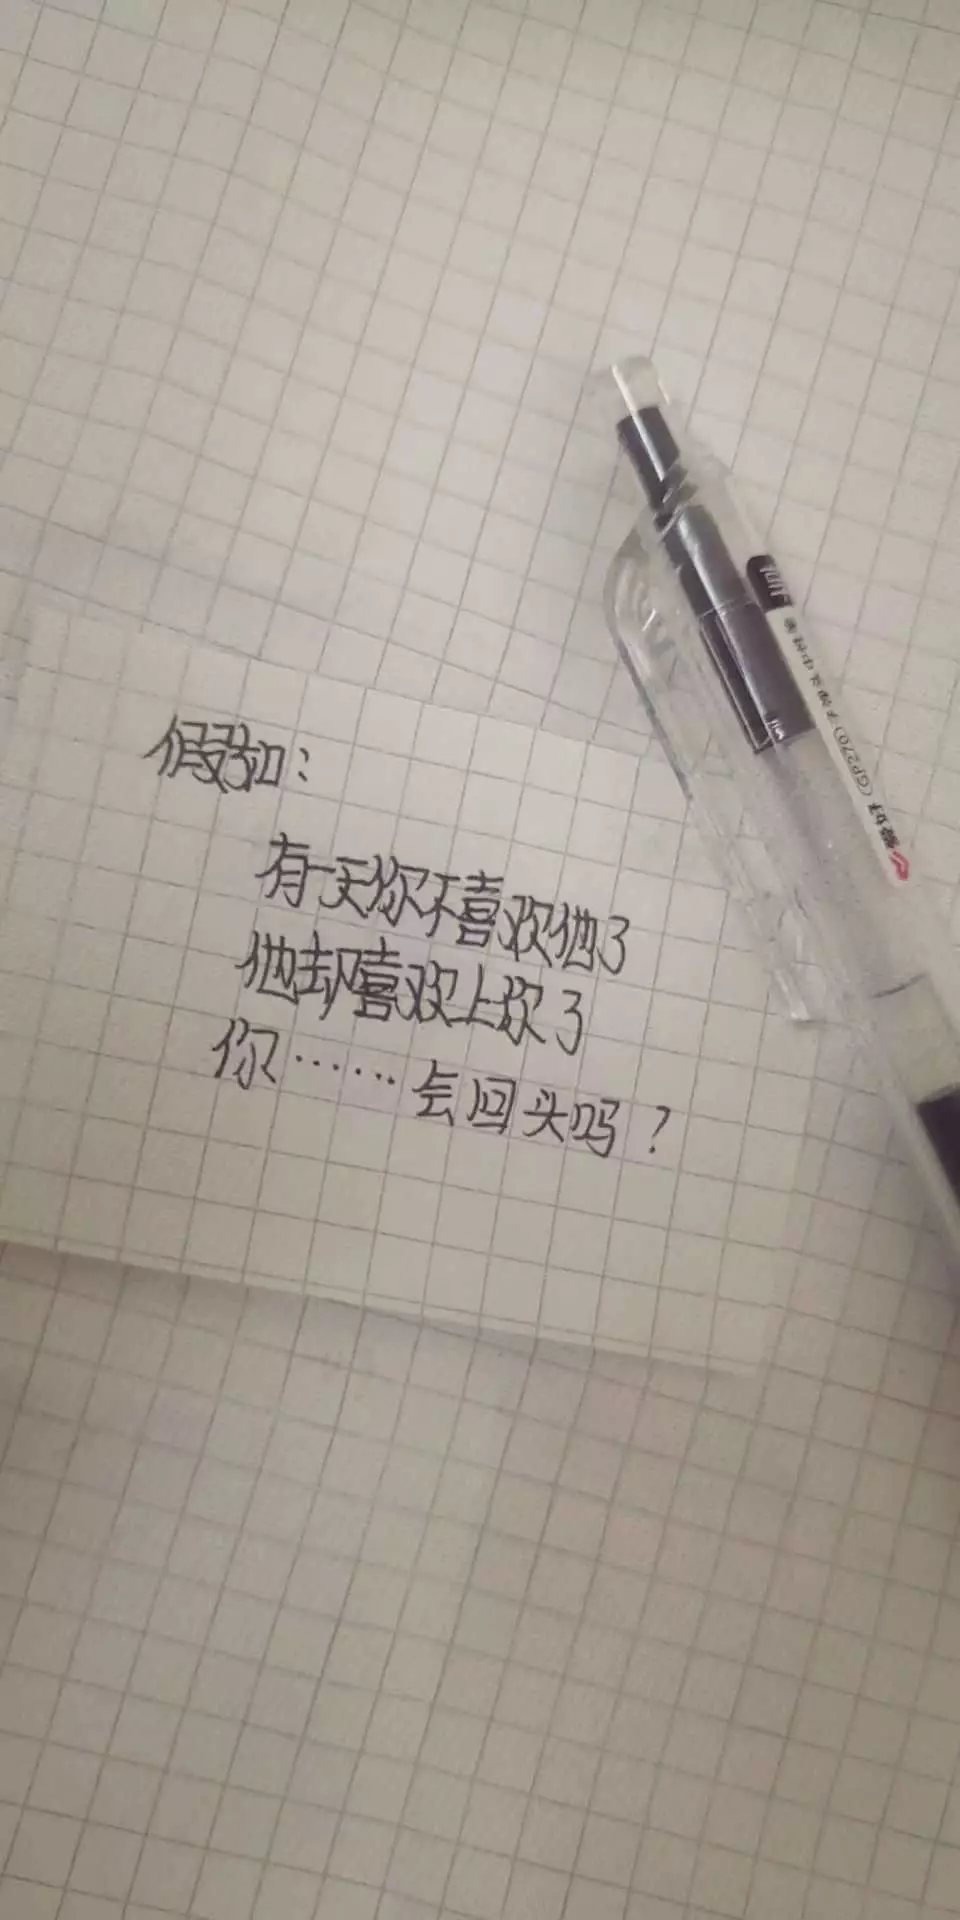 假如：
有一天你不喜欢他了
他却喜欢上你了
你……会回头吗？
(GP270)子弹头中性笔